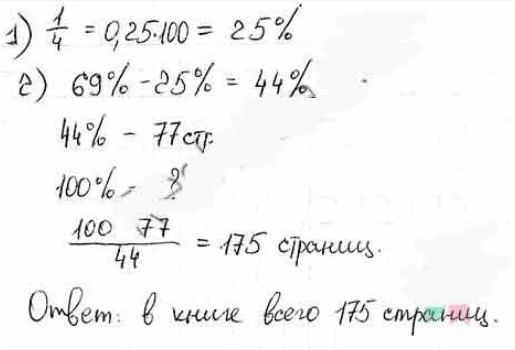 1) 1/4 = 0,25·100 = 25%
2) 69% - 25% = 44%
44% - 77 стр.
100% - ?
100 77 / 44 = 175 страниц.
Ответ: в книге всего 175 страниц.